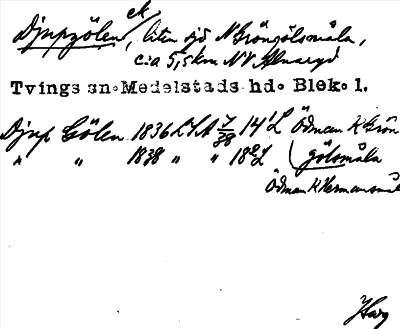 ek
Djupgölen, liten sjö N Gröngölsmåla,
c:a 5,5 km NV Alnaryd
Tvings sn. Medelstads hd. Blek. l.
Djup Gölen 1836 LSA 7/38 14¹L Ödman K Grön
" " 1838 " " 18²L gölsmåla
Ödman K Hermansmål